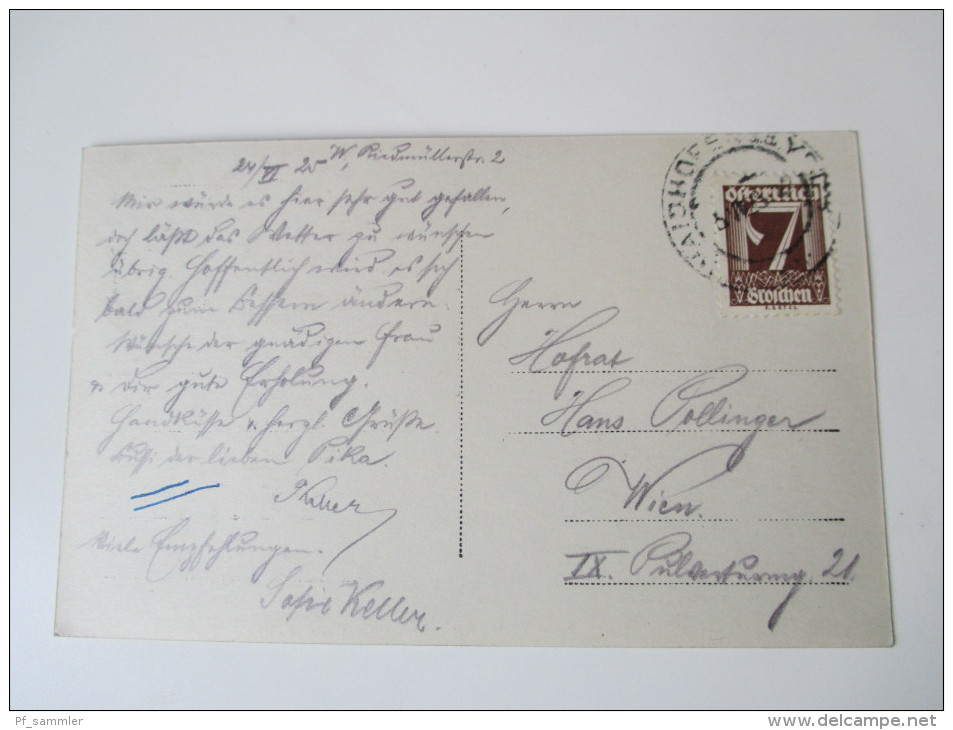 24/VI 25 W, Riedmüllerstr. 2
Mir würde es hier sehr gut gefallen,
doch läßt das Wetter zu wünschen
übrig. Hoffentlich wird es sich
bald zum Bessern ändern.
Wünsche der gnädigen Frau
u dir gute Erholung.
Handküsse u. herzl. Grüße
Bussi der lieben Pika.
Keller
Viele Empfehlungen.
Sofie Keller.
WAIDHOFEN
Österreich
7
Groschen
Herrn
Hofrat
Hans Pollinger
Wien.
IX. Pulverturmg. 21.
Pf_sammler
www.delcampe.net